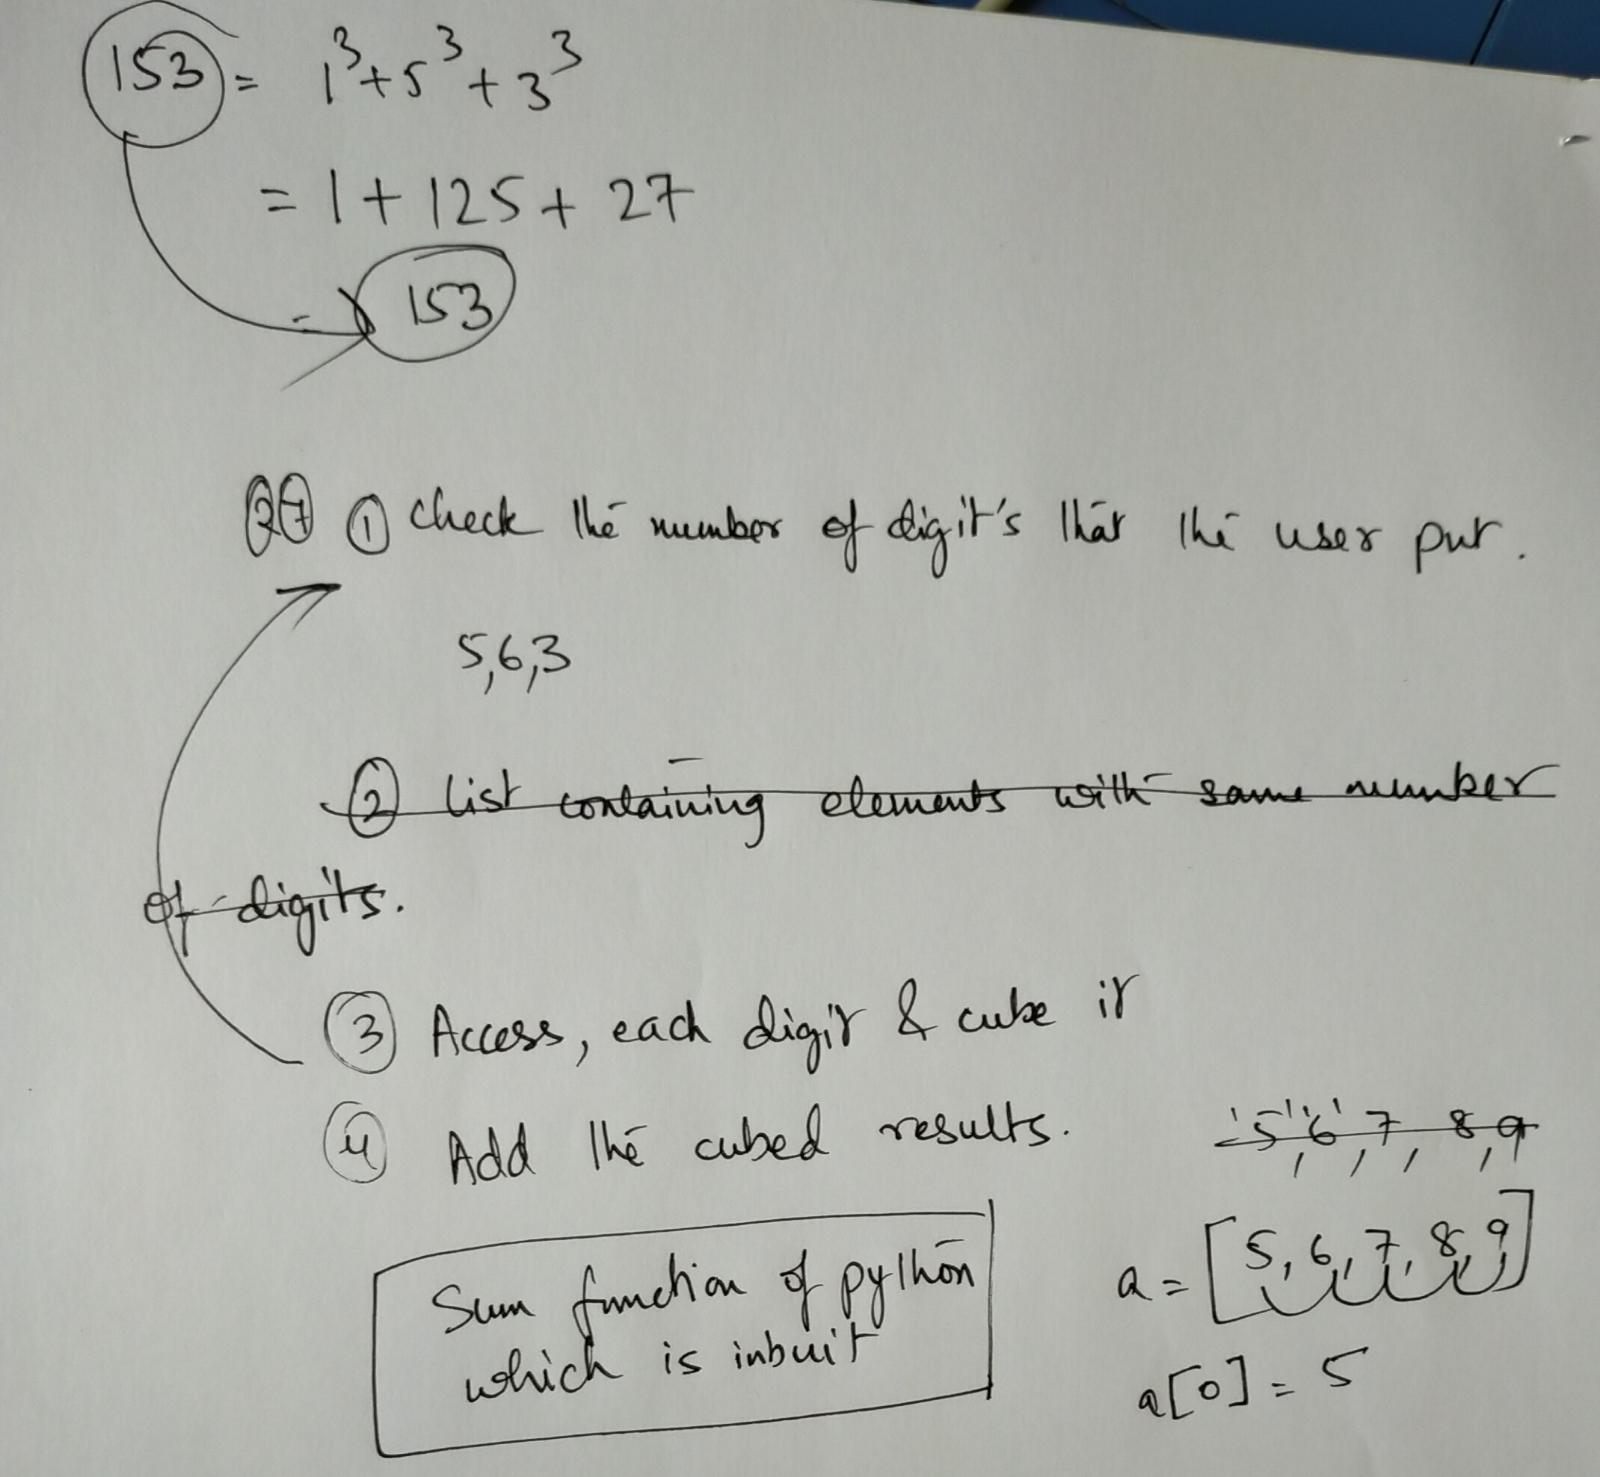 153 = 1³+5³+3³
= 1 + 125 + 27
= 153
27 1 Check the number of digit's that the user put.
5,6,3
2 List containing elements with same number
of digits.
3 Access, each digit & cube it
4 Add the cubed results.
'5','6',7,8,9
Sum function of python
which is inbuit
a = [5,6,7,8,9]
a[0] = 5